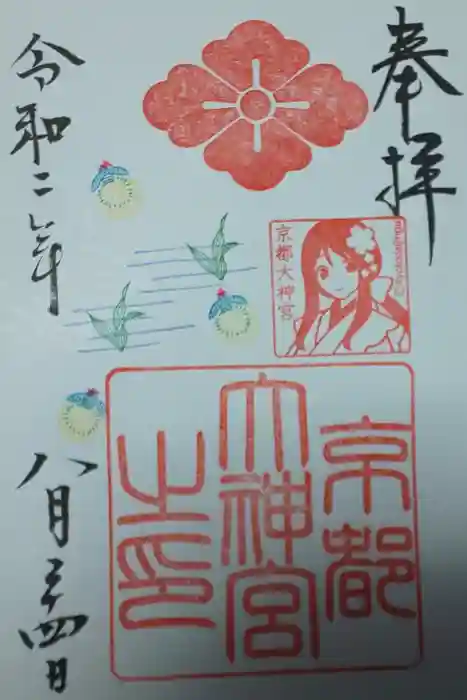 奉拝
京都大神宮
京都
大神宮
之印
令和二年
八月二十四日